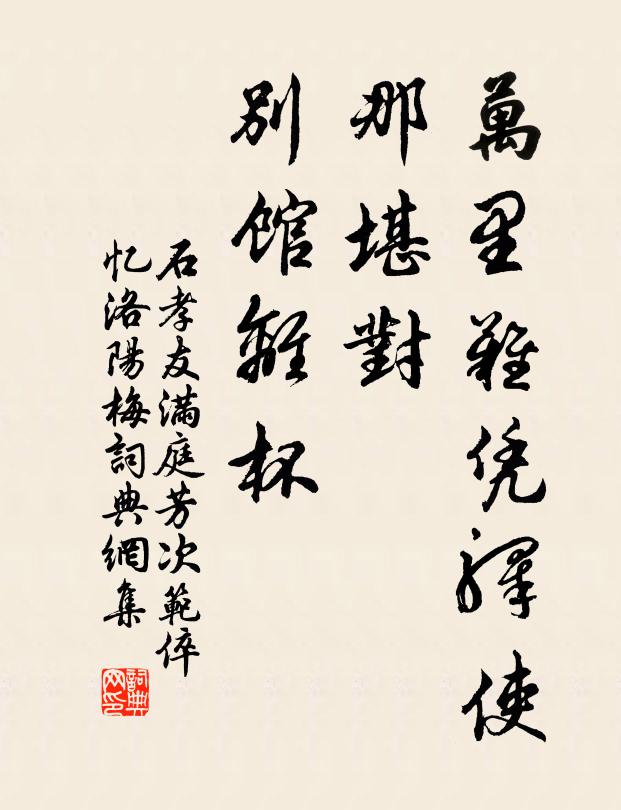 萬里難凭驛使
那堪對
別館離杯
石孝友滿庭芳次範倅
忆洛陽梅詞典網集
詞典网印